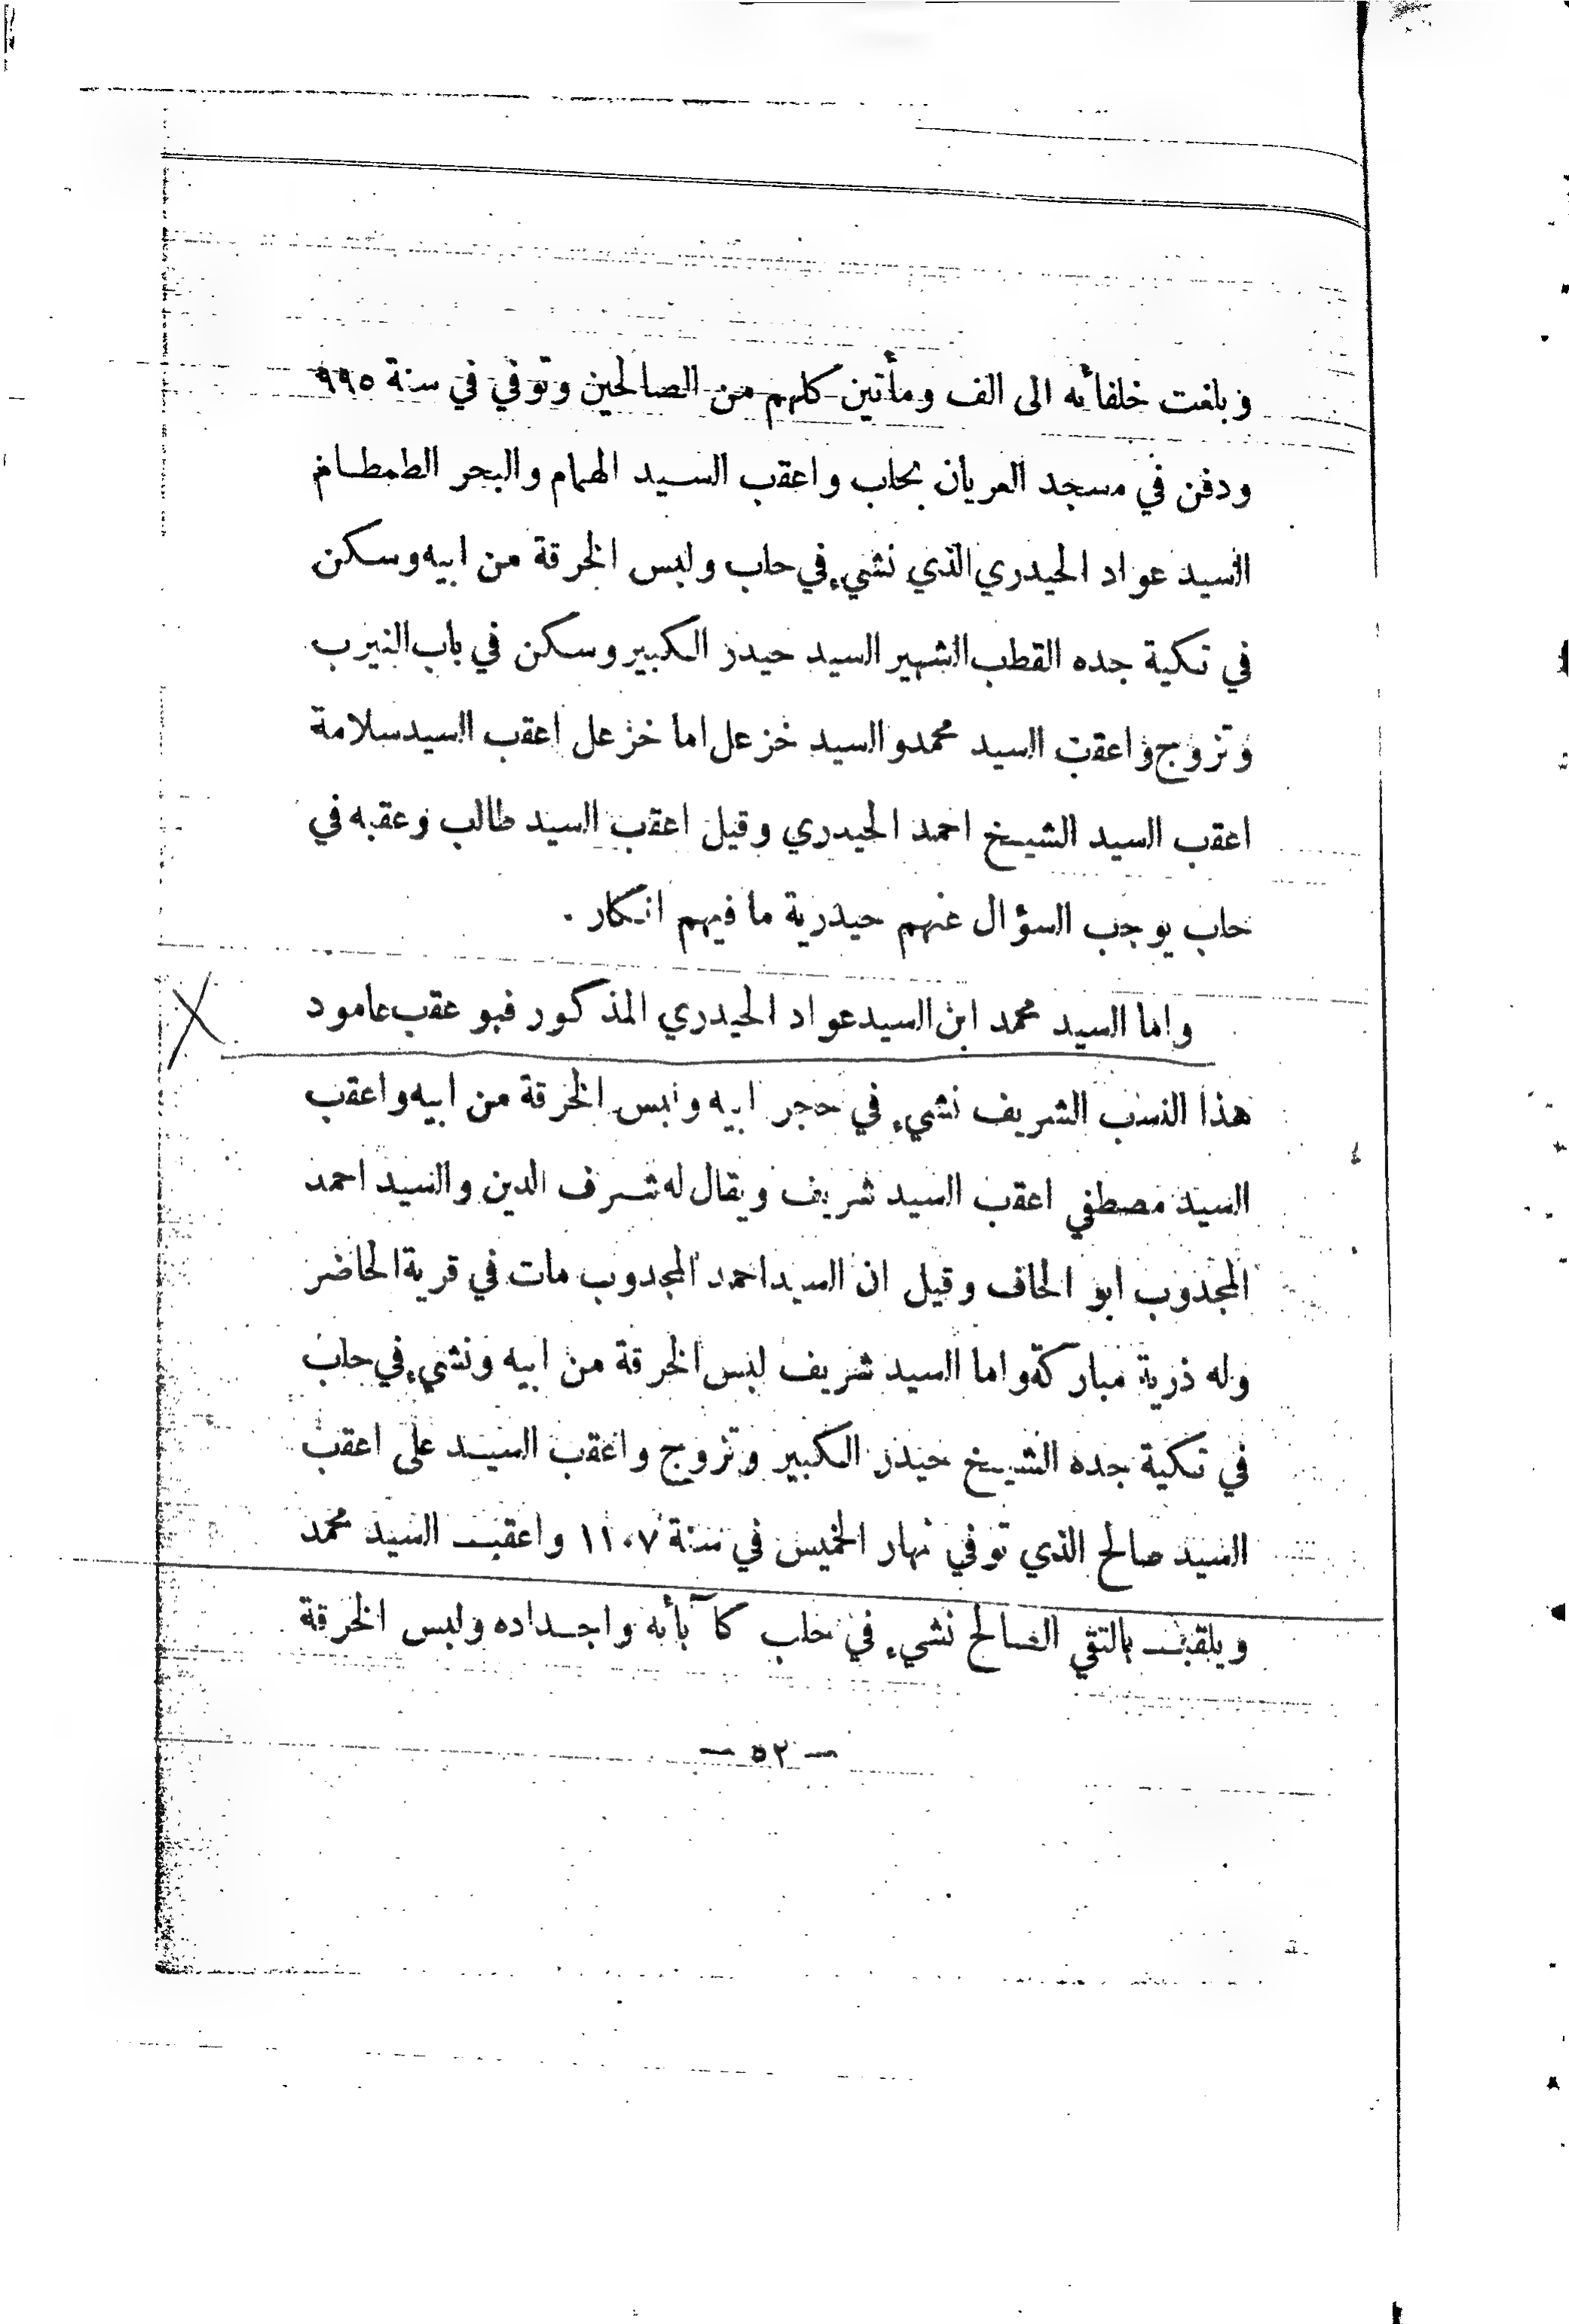 وبلغت خلفائه الى الف ومأتين كلهم من الصالحين وتوفي في سنة ٩٩٥
ودفن في مسجد العريان بحلب واعقب السيد الهمام والبحر الطمطام
السيد عواد الحيدري الذي نشيء في حلب ولبس الخرقة من ابيه وسكن
في تكية جده القطب الشهير السيد حيدر الكبير وسكن في باب النيرب
وتزوج واعقب السيد محمد والسيد خزعل اما خزعل اعقب السيد سلامة
اعقب السيد الشيخ احمد الحيدري وقيل اعقب السيد طالب وعقبه في
حلب يوجب السؤال عنهم حيدرية ما فيهم انكار .
واما السيد محمد ابن السيد عواد الحيدري المذكور فهو عقب عامود
هذا النسب الشريف نشيء في حجر ابيه ولبس الخرقة من ابيه واعقب
السيد مصطفي اعقب السيد شريف ويقال له شرف الدين والسيد احمد
المجذوب ابو الحاف وقيل ان السيد احمد المجدوب مات في قرية الحاضر
وله ذرية مباركة واما السيد شريف لبس الخرقة من ابيه ونشيء في حلب
في تكية جده الشيخ حيدر الكبير وتزوج واعقب السيد على اعقب
السيد صالح الذي توفي نهار الخميس في سنة ١١٠٧ واعقب السيد محمد
ويلقب بالتقي الصالح نشيء في حلب كآبأئه واجداده ولبس الخرقة
— ٥٢ —